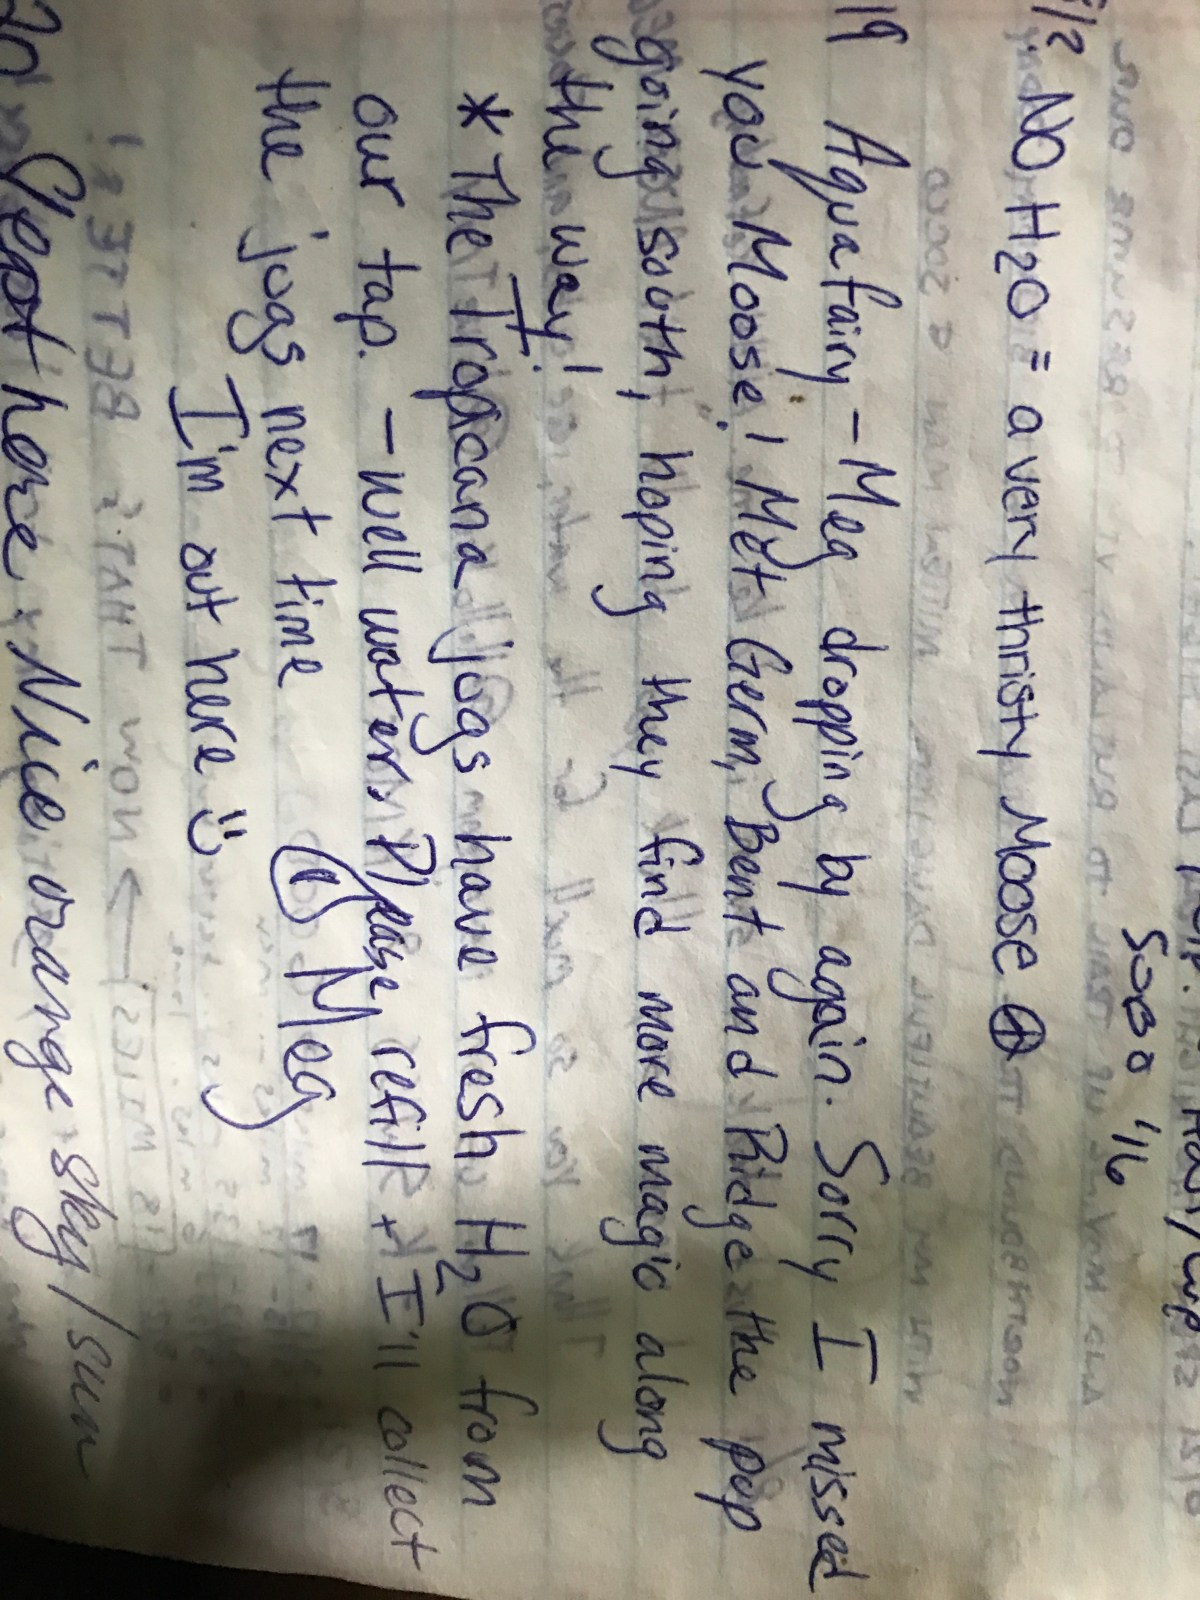 SOBO '16
5/2 NO H2O = a very thristy Moose
19 Aquafairy - Meg dropping by again. Sorry I missed
you Moose! Met Germ, Bent and Ridge the pup
going south, hoping they find more magic along
the way!
* The Tropicana jugs have fresh H2O from
our tap. - well water. Please refill + I'll collect
the jugs next time Meg
I'm out here
20 Great here. Nice orange sky/sun